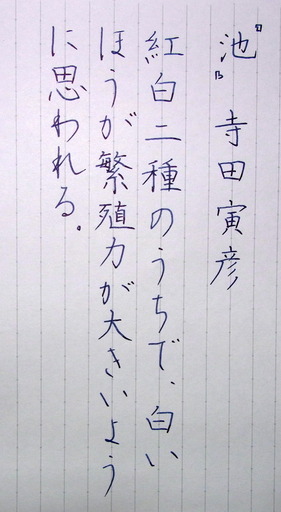 『池』 寺田寅彦
紅白二種のうちで、白い
ほうが繁殖力が大きいよう
に思われる。